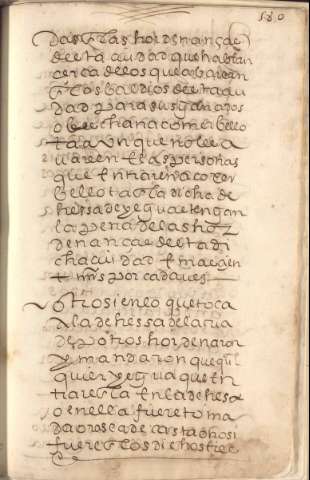 180
das e las hordenanças
desta ciudad que hablan
cerca de los que
los baldios desta ciu
dad para sus ganados
o leechan a comer bello
ta aun que no le a
vareen e las personas
que entraren a coxer
bellota la dicha de
hessa de yeguas tengan
la pena de las hor
denancas desta di
cha ciudad
mrs por cada ves
otrosi en lo que toca
a la dehessa de la
de potros hordenaron
y mandaron que qual
quier yegua que en
trare en la dehesa
o en ella fuere toma
da o rosea de casta o hosi
fuere los dichos trec